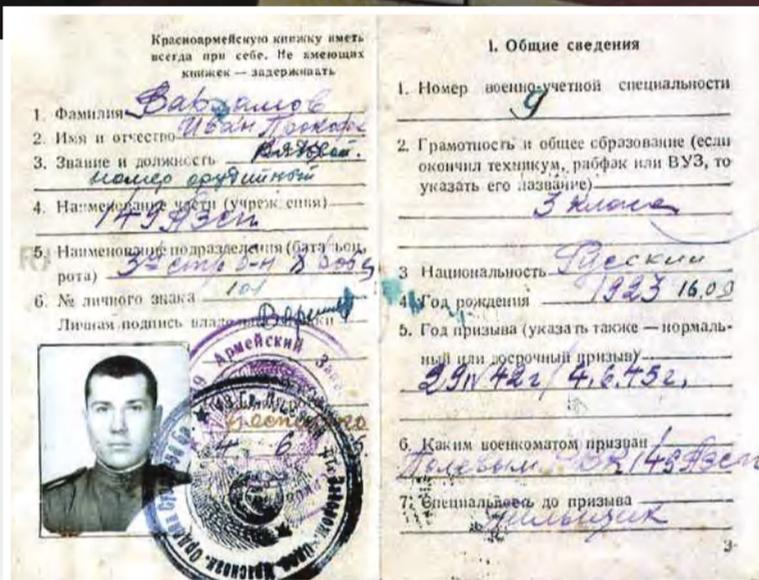 Красноармейскую книжку иметь
всегда при себе. Не имеющих
книжек — задерживать
1. Фамилия
2. Имя и отчество Иван
3. Звание и должность рядовой.
номер орудийный
4. Наименование части (учреждения)
149 АЗСП
5. Наименование подразделения (батальон,
рота)
6. № личного знака 101
Личная подпись владельца книжки
Армейский
4 6
1. Общие сведения
1. Номер военно-учетной специальности
9
2. Грамотность и общее образование (если
окончил техникум, рабфак или ВУЗ, то
указать его название)
3 класса
3 Национальность Русский
4. Год рождения 1923 16.09
5. Год призыва (указать также — нормаль-
ный или досрочный призыв)
29 IV 42 г / 4.6.45 г.
6. Каким военкоматом призван
Полевым
7. Специальность до призыва
3